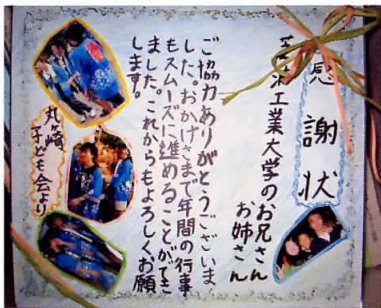 感謝状
工業大学のお兄さん
お姉さん
ご協力ありがとうございま
した。おかげさまで年間の行事
もスムーズに進めることができ
ました。これからもよろしくお願
します。
丸ヶ崎
子ども会より